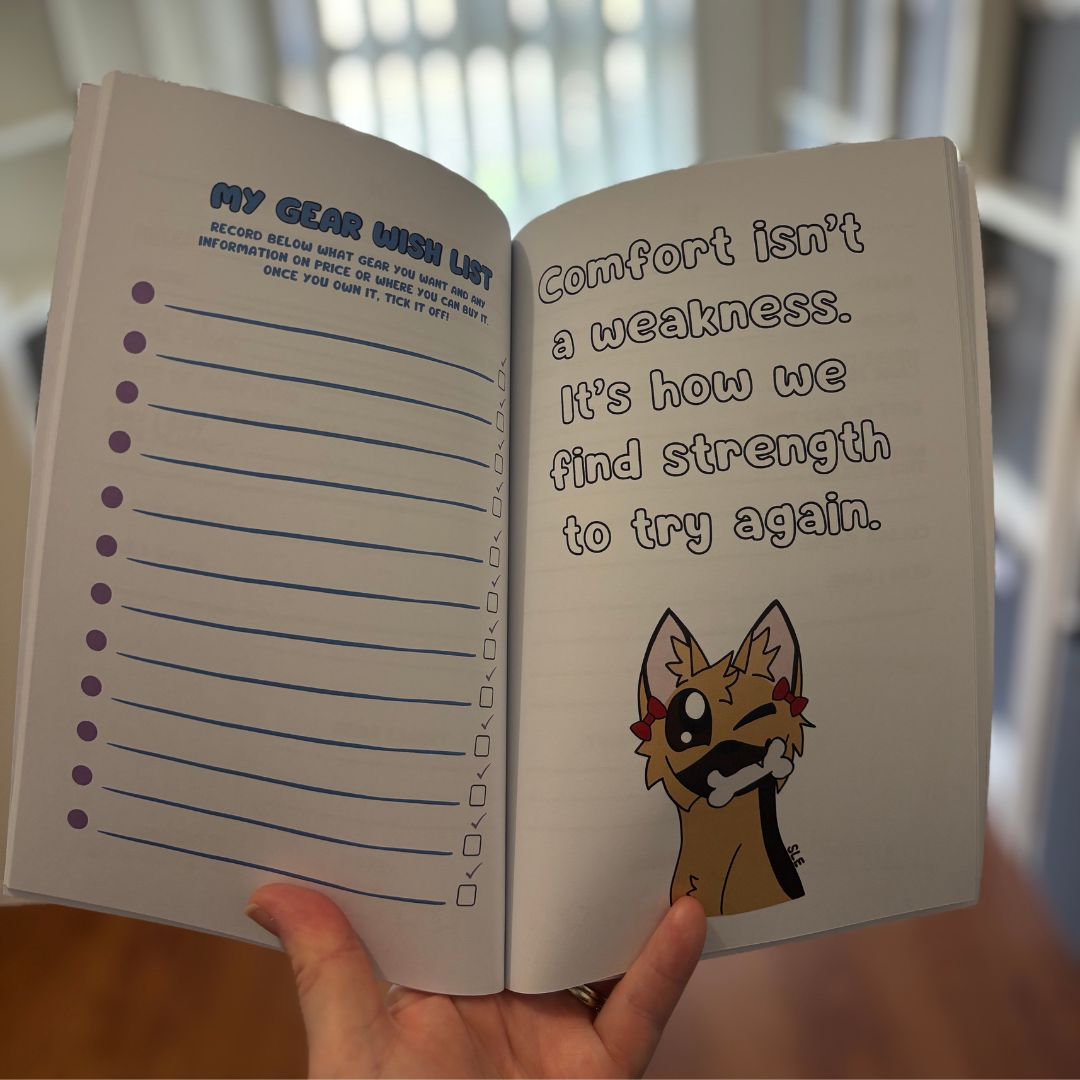 MY GEAR WISH LIST
RECORD BELOW WHAT GEAR YOU WANT AND ANY
INFORMATION ON PRICE OR WHERE YOU CAN BUY IT.
ONCE YOU OWN IT, TICK IT OFF!
Comfort isn't
a weakness.
It's how we
find strength
to try again.
SLE